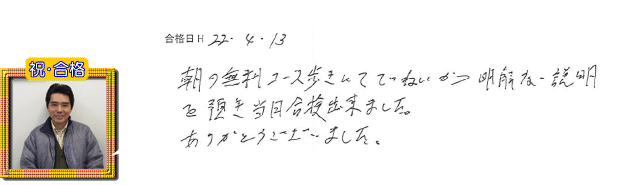 合格日H 22・4・13
祝・合格
朝の無料コース歩きいてていねいかつ明解な説明
を頂き当日合格出来ました。
ありがとうございました。